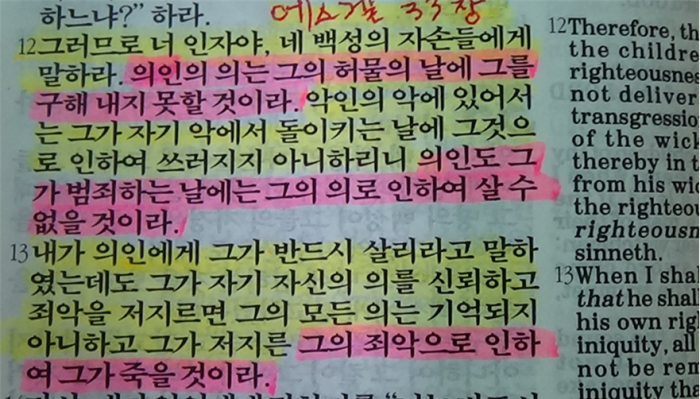 하느냐?” 하라.
에스겔 33장
12그러므로 너 인자야, 네 백성의 자손들에게
말하라. 의인의 의는 그의 허물의 날에 그를
구해 내지 못할 것이라. 악인의 악에 있어서
는 그가 자기 악에서 돌이키는 날에 그것으
로 인하여 쓰러지지 아니하리니 의인도 그
가 범죄하는 날에는 그의 의로 인하여 살 수
없을 것이라.
13내가 의인에게 그가 반드시 살리라고 말하
였는데도 그가 자기 자신의 의를 신뢰하고
죄악을 저지르면 그의 모든 의는 기억되지
아니하고 그가 저지른 그의 죄악으로 인하
여 그가 죽을 것이라.
12Therefore, th
the childre
righteousnes
not deliver
transgressio
of the wick
thereby in t
from his wi
the righteou
righteousn
sinneth.
13When I shal
that he shal
his own rig
iniquity, all
not be rem
iniquity tha